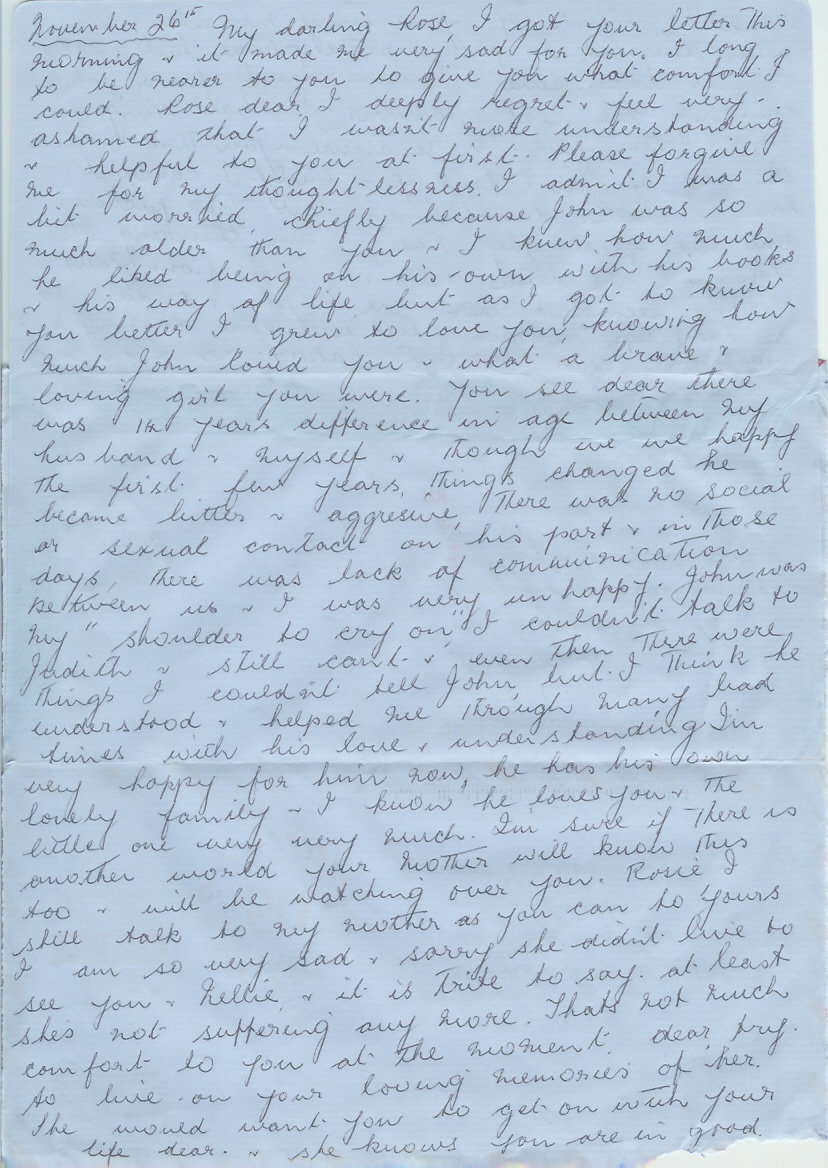 November 26th My darling Rose, I got your letter this
morning & it made me very sad for you. I long
to be nearer to you to give you what comfort I
could. Rose dear I deeply regret & feel very
ashamed that I wasn't more understanding
& helpful to you at first. Please forgive
me for my thoughtlessness. I admit I was a
bit worried, chiefly because John was so
much older than you & I knew how much
he liked being on his own with his books
& his way of life but as I got to know
you better I grew to love you, knowing how
much John loved you & what a brave &
loving girl you were. You see dear there
was years difference in age between my
husband & myself & though we we happy
the first few years, things changed he
became bitter & aggresive, There was no social
or sexual contact on his part & in those
days, there was lack of communication
between us & I was very unhappy. John was
my "shoulder to cry on" I couldn't talk to
Judith & still can't & even then there were
things I couldn't tell John, but I think he
understood & helped me through many bad
times with his love & understanding I'm
very happy for him now, he has his own
lovely family & I know he loves you & the
little one very very much. I'm sure if there is
another world your mother will know this
too & will be watching over you. Rosie I
still talk to my mother as you can to yours
I am so very sad & sorry she didn't live to
see you & Nellie, & it is trite to say at least
she's not suffering any more. Thats not much
comfort to you at the moment, dear try
to live on your loving memories of her.
She would want you to get on with your
life dear & she knows you are in good